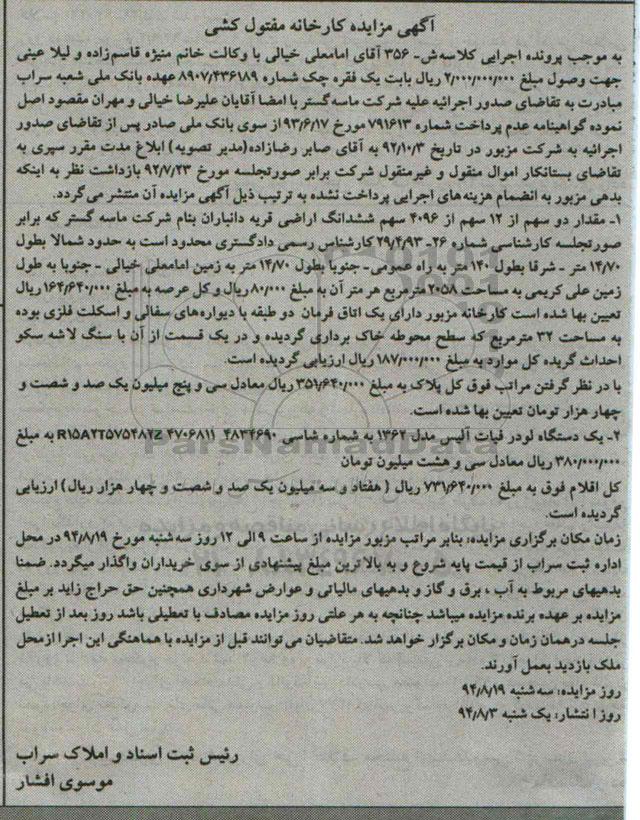 آگهی مزایده کارخانه مفتول کشی
به موجب پرونده اجرایی کلاسه ش- ۳۵۶ آقای امامعلی خیالی با وکالت خانم منیژه قاسم‌زاده و لیلا عینی
جهت وصول مبلغ ۲/۰۰۰/۰۰۰/۰۰۰ ریال بابت یک فقره چک شماره ۸۹۰۷/۴۳۶۱۸۹ عهده بانک ملی شعبه سراب
مبادرت به تقاضای صدور اجرائیه علیه شرکت ماسه گستر با امضا آقایان علیرضا خیالی و مهران مقصود اصل
نموده گواهینامه عدم پرداخت شماره ۷۹۱۶۱۳ مورخ ۹۳/۶/۱۷ از سوی بانک ملی صادر پس از تقاضای صدور
اجرائیه به شرکت مزبور در تاریخ ۹۲/۱۰/۳ به آقای صابر رضازاده (مدیر تصویه) ابلاغ مدت مقرر سپری به
تقاضای بستانکار اموال منقول و غیرمنقول شرکت برابر صورتجلسه مورخ ۹۲/۷/۲۳ بازداشت نظر به اینکه
بدهی مزبور به انضمام هزینه‌های اجرایی پرداخت نشده به ترتیب ذیل آگهی مزایده آن منتشر می‌گردد.
۱- مقدار دو سهم از ۱۲ سهم از ۴۰۹۶ سهم ششدانگ اراضی قریه دانباران بنام شرکت ماسه گستر که برابر
صورتجلسه کارشناسی شماره ۲۶- ۲۹/۴/۹۳ کارشناس رسمی دادگستری محدود است به حدود شمالا بطول
۱۴/۷۰ متر - شرقا بطول ۱۴۰ متر به راه عمومی- جنوبا بطول ۱۴/۷۰ متر به زمین امامعلی خیالی - جنوبا به طول
زمین علی کریمی به مساحت ۲۰۵۸ مترمربع هر متر آن به مبلغ ۸۰/۰۰۰ ریال و کل عرصه به مبلغ ۱۶۴/۶۴۰/۰۰۰ ریال
تعیین بها شده است کارخانه مزبور دارای یک اتاق فرمان دو طبقه با دیواره‌های سفالی و اسکلت فلزی بوده
به مساحت ۳۲ مترمربع که سطح محوطه خاک برداری گردیده و در یک قسمت از آن با سنگ لاشه سکو
احداث گریده کل موارد به مبلغ ۱۸۷/۰۰۰/۰۰۰ ریال ارزیابی گردیده است.
با در نظر گرفتن مراتب فوق کل پلاک به مبلغ ۳۵۱/۶۴۰/۰۰۰ ریال معادل سی و پنج میلیون یک صد و شصت و
چهار هزار تومان تعیین بها شده است.
۲- یک دستگاه لودر فیات آلیس مدل ۱۳۶۲ به شماره شاسی ۴۸۳۴۶۹۰ ۴۷۰۶۸۱۱ R15A2T575482Z به مبلغ
۳۸۰/۰۰۰/۰۰۰ ریال معادل سی و هشت میلیون تومان
کل اقلام فوق به مبلغ ۷۳۱/۶۴۰/۰۰۰ ریال ( هفتاد و سه میلیون یک صد و شصت و چهار هزار ریال) ارزیابی
گردیده است.
زمان مکان برگزاری مزایده: بنابر مراتب مزبور مزایده از ساعت ۹ الی ۱۲ روز سه شنبه مورخ ۹۴/۸/۱۹ در محل
اداره ثبت سراب از قیمت پایه شروع و به بالا ترین مبلغ پیشنهادی از سوی خریداران واگذار میگردد. ضمنا
بدهیهای مربوط به آب ، برق و گاز و بدهیهای مالیاتی و عوارض شهرداری همچنین حق حراج زاید بر مبلغ
مزایده بر عهده برنده مزایده میباشد چنانچه به هر علتی روز مزایده مصادف با تعطیلی باشد روز بعد از تعطیل
جلسه در همان زمان و مکان برگزار خواهد شد. متقاضیان می توانند قبل از مزایده با هماهنگی این اجرا از محل
ملک بازدید بعمل آورند.
روز مزایده: سه شنبه ۹۴/۸/۱۹
روز انتشار: یک شنبه ۹۴/۸/۳
رئیس ثبت اسناد و املاک سراب
موسوی افشار
ParsNamadData